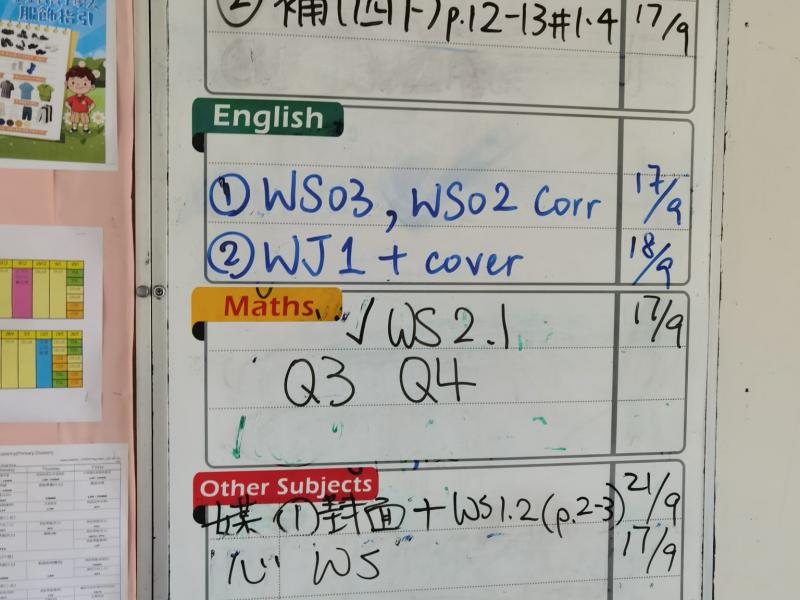 服飾指引
② 補(四下)p.12-13#1-4 17/9
English
① WS03, WS02 Corr 17/9
② WJ1 + cover 18/9
Maths
✓ WS2.1 17/9
Q3 Q4
Other Subjects
① 封面 + WS1.2(p.2-3) 21/9
心 WS 17/9